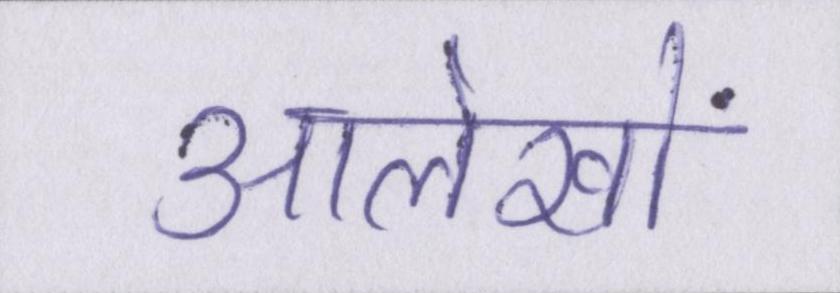 आलेखों